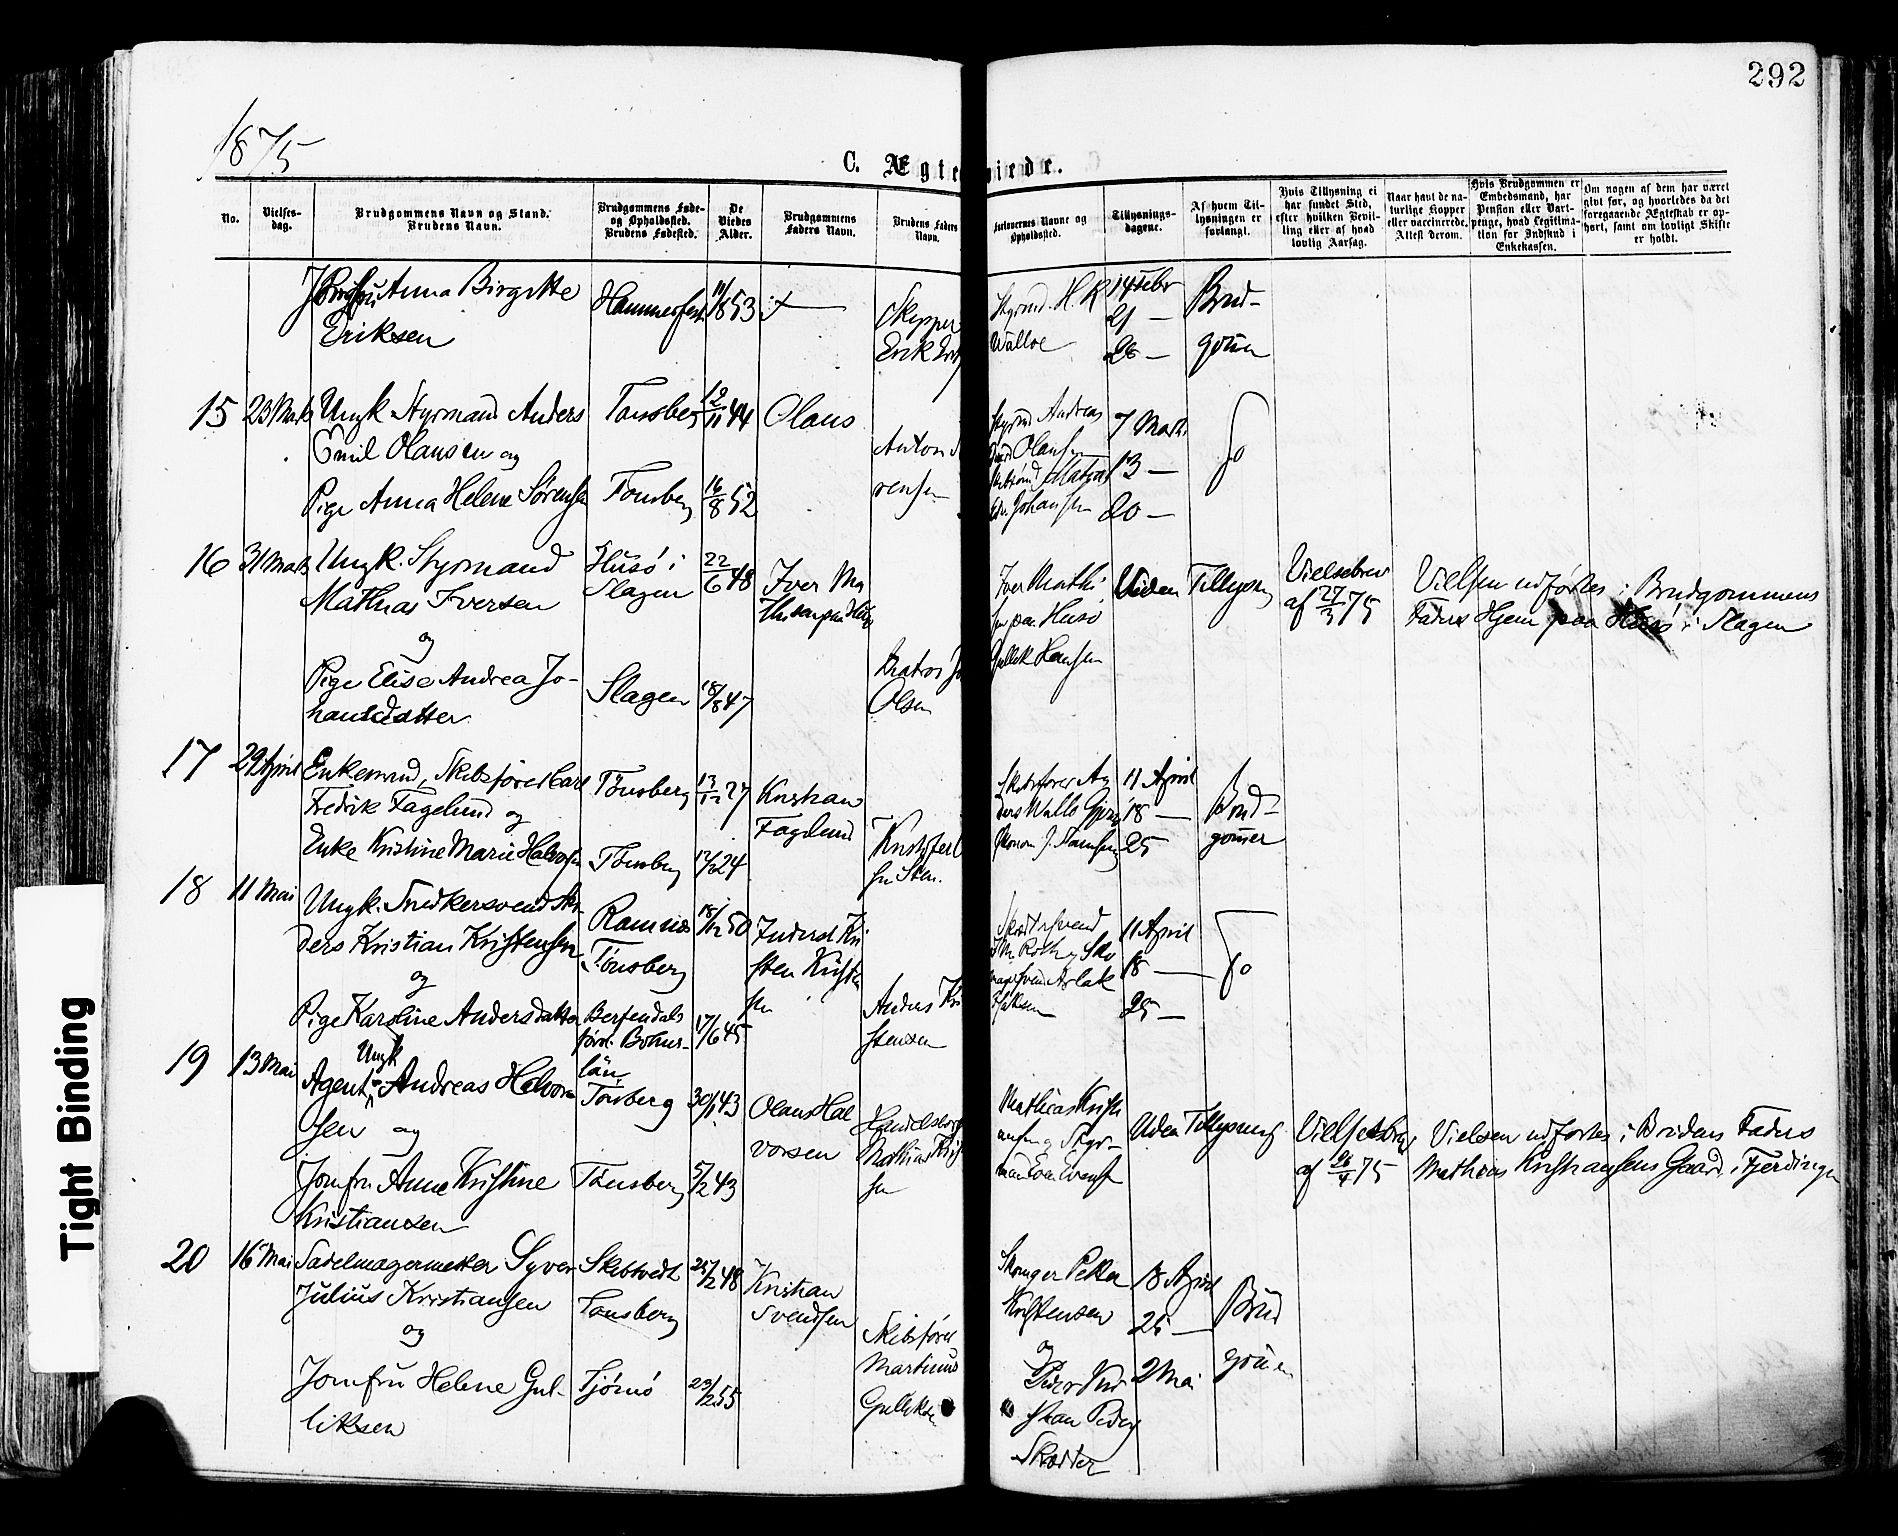 292
1875
C. Ægte viede.
No.
Vielses-
dag.
Brudgommens Navn og Stand.
Brudens Navn.
Brudgommens Føde-
og Opholdssted.
Brudens Fødested.
De
Viedes
Alder.
Brudgommens
Faders Navn.
Brudens Faders
Navn.
Forlovernes Navne og
Opholdssted.
Tillysnings-
dagene.
Af hvem Til-
lysningen er
forlangt.
Hvis Tillysning ei
har fundet Sted,
efter hvilken Bevil-
ling eller af hvad
lovlig Aarsag.
Naar havt de na-
turlige Kopper
eller vaccinerede.
Attest derom.
Hvis Brudgommen er
Embedsmand, har
Pension eller Vart-
penge, hvad Legitima-
tion for Indskud i
Enkekassen.
Om nogen af dem har været
givt før, og hvorledes da det
foregaaende Ægteskab er op-
hørt, samt om lovligt Skifte
er holdt.
Jomfru Anna Birgitte
Eriksen
Hammerfest
11/8 53
Skipper
Erik
Styrmd. H. R
Walloe
14 Febr
21 —
28 —
Brud-
gomen
15
23 Marts
Ungk. Styrmand Anders
Emil Olausen og
Pige Anna Helene Sørensen
Tønsberg
12/11 44
Tønsberg
16/8 52
Olaus
Anton S
rensen
Styrmd Andreas
Olausen
Johansen
7 Marts
13 —
20 —
Do
16
31 Marts
Ungk. Styrmand
Mathias Iversen
og
Pige Elise Andrea Jo-
hansdatter
Husø i
Slagen
22/6 48
Slagen
18/8 47
Iver Ma
Olsen
Iver Mathi
sen paa Husø
Gullik Hansen
Uden Tillysning
Vielsebrev
af 27/3 75
Vielsen udførtes i Brudgommens
Faders Hjem paa Husø i Slagen
17
29 April
Enkemand, Skibsfører Carl
Fredrik Fagelund og
Enke Kristine Marie Halvorsen
Tønsberg
13/12 27
Tønsberg
Kristian
Fagelund
Kristoffer
sen
Skibsfører An
ders Wallo
11 April
18 —
25
Brud-
gomen
18
11 Mai
Ungk. Snedkersvend An-
ders Kristian Kristensen
og
Pige Karoline Andersdatter
Ramnæs
Tønsberg
18/12 50
17/6 45
Anders Kri
stensen
11 April
18 —
25 —
Do
19
13 Mai
Ungk
Agent Andreas Halvor
sen og
Jomfru Anne Kristine
Kristiansen
Tønsberg
30/1 43
Tønsberg
5/2 43
Olaus Hal
vorsen
Mathias Kristi
ansen og Styr-
mand
Uden Tillysning
Vielsesbrev
af 26/4 75
Vielsen udførtes i Brudens Faders
Mathias Kristiansens Gaard i Fjerdingen
20
16 Mai
Sadelmagermester Syver
Julius Kristiansen
og
Jomfru Helene Gul-
liksen
Skibtvedt
Tønsberg
Tjømø
23/2 55
Kristian
Svendsen
Skibsfører
Martinus
Gulliksen
Petter
Kristensen
og
Skrædder
18 April
25 —
2 Mai
Brud
gomen
Tight Binding